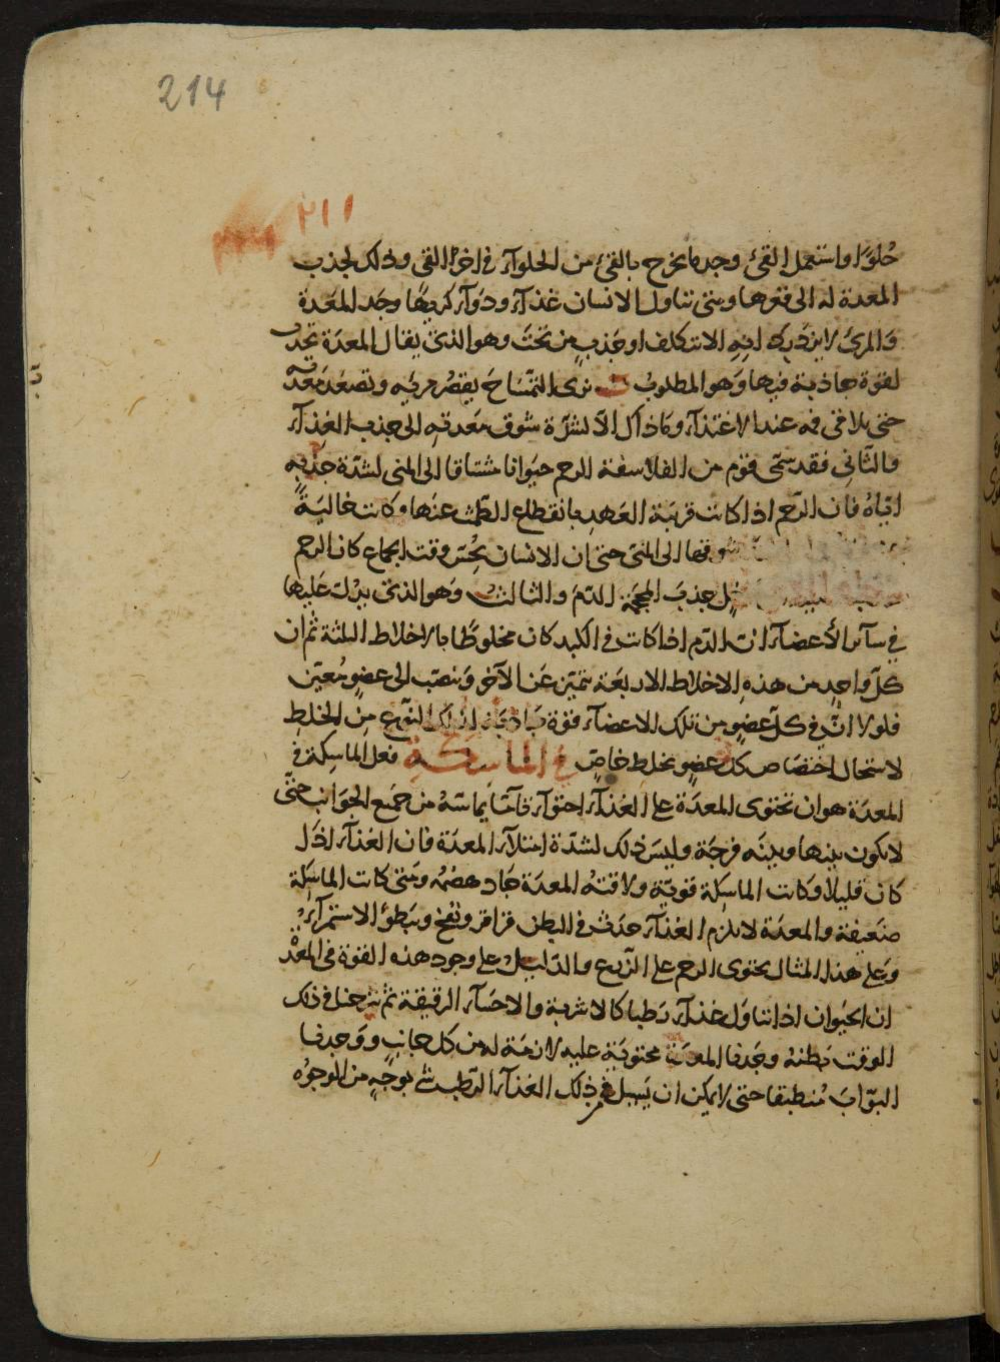 214
٢١١
حُلوًا واستعمل القئ وجد ما يخرج بالقئ من الحلوآء في اخر القى وذلك لجذب
المعدة له الى قعرها ومتى تناول الانسان غذآء ودوآء كريهًا وجد المعَدة
وَالمرئ لايزدَرِدانِهِ الا بتكلف اوجَذبٍ من تحتَ وهو الذى يقال المعدَة تجذب
لقوة جاذبة فيها وَهو المطلوبُ نرى التمْسَاحَ يقصُر مريه وتصعَد معَدته
حتى تلاقى فمه عند الاغتذآء وَمَا ذاك الّا لشرَّة شوق معَدتهِ الى جذب الغذآء
والثّانِى فقد سَمّى قوم من الفلاسفة للرحم حيَوانا مشتاقا الى المنى لشدّة جذبِهِ
اتياهُ فان الرّحم اذا كانت قريبَة العَهدِ بانقطاع الطّمث عَنها وكانت خاليَةً
شوقها الى المنىّ حتى ان الانسان يحُسّ وقت الجماع كان الرحم
جذبَ المحجمَة الدّمَ والثالث وَهو الذى يدُل عَليها
في سآئر الأعضآء ان الدّم اذا كانت في الكبد كان مخلوطًا بالاخلاط الثلثة ثم ان
كلّ واحِدٍ من هذهِ الاخلاط الاربعَة يتميّز عَن الآخر وَينصَب الى عضوٍ مُعيّن
فلولا انّ في كلّ عضوٍ من تلك الاعضآء قوة جَاذبَة لذلك النّوعِ مِن الخلطِ
لاستحال اختصَاص كل عضوٍ بخلطٍ خاصٍّ في الماسكة فعل الماسِكة في
المعدَة هو ان تحتوى المعدَة على الغذآء احتوآء تآمّا يماسّهُ من جميع الجوَانب حتّى
لا يكون بينها وبينَه فرجَة وليسَ ذلك لشدّة امتلآء المعدَة فان الغذآء اذا
كان قليلا وكانت الماسِكة قويّة ولاقتهُ المعدَة جَاد هضمُه ومَتى كانت الماسِكة
ضَعيفة والمعدَة لا تلزم الغذآء حدَث في البَطن قراقر ونفخ وبَطؤ الاستمرآء
وَعلى هذا المثال يحتوى الرحم على الزّرع والدّليل على وجود هذه القوة في المعدَة
ان الحيَوان اذا تناوَل غذآء رَطبا كالاشربة والاحسآء الرقيقة ثم شرحنا في ذلك
الوقت بَطنهُ وجَدنا المعدَة محتويَة عليهِ لازمَة له من كل جانبٍ ووَجدنا
البوّابَ مُنطبقا حتى لا يمكن ان يَسيل من ذلك الغذآء الرّطب شئ بوَجهٍ من الوجوُه